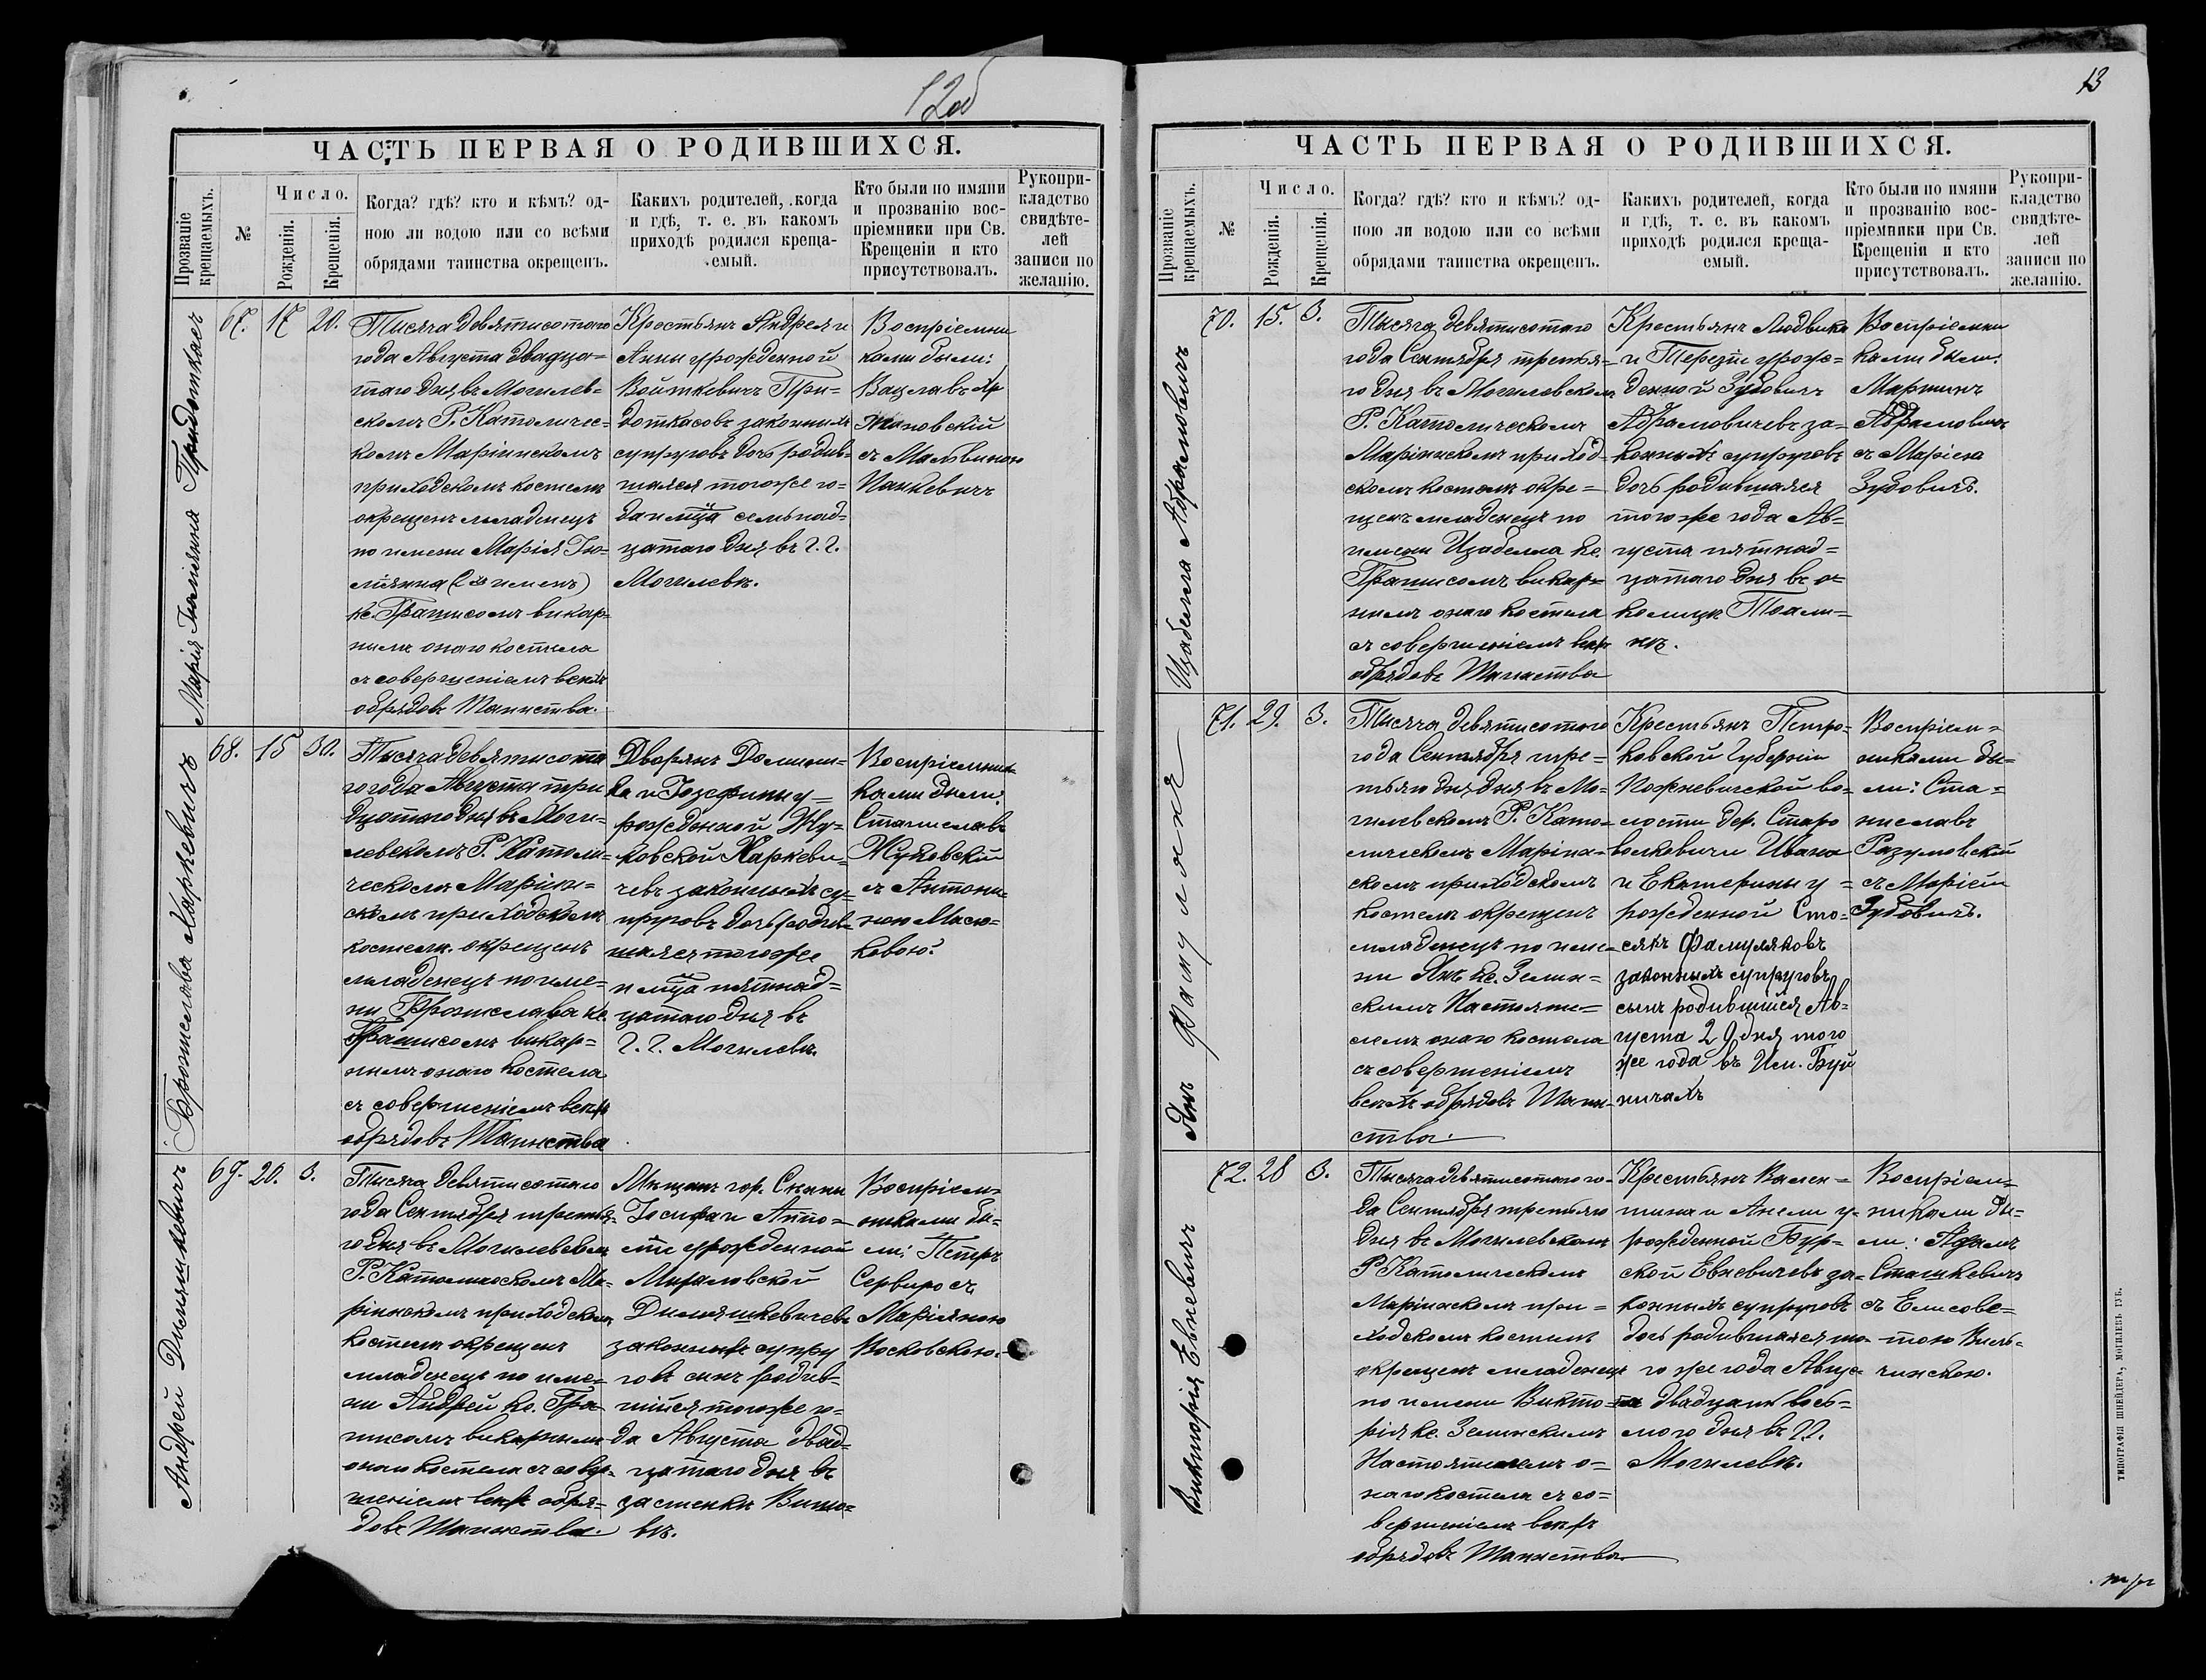 12об
ЧАСТЬ ПЕРВАЯ О РОДИВШИХСЯ.
Прозваніе крещаемыхъ.
№
Число.
Рожденія.
Крещенія.
Когда? гдѣ? кто и кѣмъ? од-
ною ли водою или со всѣми
обрядами таинства окрещенъ.
Какихъ родителей, когда
и гдѣ, т. е. въ какомъ
приходѣ родился креща-
емый.
Кто были по имяни
и прозванію вос-
пріемники при Св.
Крещеніи и кто
присутствовалъ.
Рукопри-
кладство
свидѣте-
лей
записи по
желанію.
Марія Юліянна Придоткасъ
67. 17 20.
Тысяча девятисотаго
года Августа двадца-
таго дня въ Могилев-
скомъ Р. Католичес-
комъ Маріинскомъ
приходскомъ костелѣ
окрещенъ младенецъ
по имени Марія Юлі-
янна (2хъ именъ)
кс. Грацисомъ викар-
нымъ онаго костела
съ совершеніемъ всѣхъ
обрядовъ Таинства.
Крестьянъ Андрея и
Анны урожденной
Войткевичъ При-
доткасовъ законныхъ
супруговъ дочь родив-
шаяся того же го-
да и м-ца семьнад-
цатаго дня въ г. г.
Могилевѣ.
Воспріемни
ками были:
Вацлавъ
съ Мальвиною
Ицкевичъ
Бронислава Маркевичъ
68. 15 30.
Тысяча девятисота
го года Августа три
дцатого дня въ Моги-
левскомъ Р. Католи-
ческомъ Маріин-
скомъ приходскомъ
костелѣ окрещенъ
младенецъ по име-
ни Бронислава кс.
Грацисомъ викар-
нымъ онаго костела
съ совершеніемъ всѣхъ
обрядовъ Таинства
Дворянъ Домини-
ка и Іозефины у-
рожденной Жу-
ковской Маркеви-
чевъ законныхъ су-
пруговъ дочь родив-
шаяся того же
и м-ца пятнад-
цатаго дня въ
г. г. Могилевѣ.
Воспріемни
ками были:
Станиславъ
Жуковскій
съ Антони-
ною Масю-
ковою.
Андрей
69. 20. 3.
Тысяча девятисотаго
года Сентября третья-
го дня въ Могилевскомъ
Р. Католическомъ Ма-
ріинскомъ приходскомъ
костелѣ окрещенъ
младенецъ по име-
ни Андрей кс. Гра-
цисомъ викарнымъ
онаго костела съ совер-
шеніемъ всѣхъ обря-
довъ Таинства.
Мѣщанъ гор.
Іосифа и Аппо-
ліи урожденной
законныхъ супру
говъ сынъ родив-
шійся того же го-
да Августа двад-
цатаго дня въ
застенкѣ
Воспріем-
никами бы-
ли: Петръ
съ
Маріянною
13
ЧАСТЬ ПЕРВАЯ О РОДИВШИХСЯ.
Прозваніе крещаемыхъ.
№
Число.
Рожденія.
Крещенія.
Когда? гдѣ? кто и кѣмъ? од-
ною ли водою или со всѣми
обрядами таинства окрещенъ.
Какихъ родителей, когда
и гдѣ, т. е. въ какомъ
приходѣ родился креща-
емый.
Кто были по имяни
и прозванію вос-
пріемники при Св.
Крещеніи и кто
присутствовалъ.
Рукопри-
кладство
свидѣте-
лей
записи по
желанію.
Изабелла Абрамовичъ
70. 15. 3.
Тысяча девятисотаго
года Сентября третья-
го дня въ Могилевскомъ
Р. Католическомъ
Маріинскомъ приход-
скомъ костелѣ окре-
щенъ младенецъ по
имени Изабелла кс.
Грацисомъ викар-
нымъ онаго костела
съ совершеніемъ всѣхъ
обрядовъ Таинства
Крестьянъ Людвика
и Терезіи урож-
денной Зубовичъ
Абрамовичевъ за-
конныхъ супруговъ
дочь родившаяся
того же года Ав-
густа пятнад-
цатаго дня въ о-
колицѣ
Воспріемни
ками были:
Мартинъ
Абрамовичъ
съ Маріею
Зубовичъ.
Янъ Фамулякъ
71. 29. 3.
Тысяча девятисотаго
года Сентября тре-
тьяго дня дня въ Мо-
гилевскомъ Р. Като-
лическомъ Маріин-
скомъ приходскомъ
костелѣ окрещенъ
младенецъ по име-
ни Янъ кс. Зелин-
скимъ Настояте-
лемъ онаго костела
съ совершеніемъ
всѣхъ обрядовъ Таин-
ства.
Крестьянъ Петро-
ковской Губерніи
Пожневичской во-
лости дер. Старо
волковичи Ивана
и Екатерины у-
рожденной Сто-
сякъ Фамуляковъ
законныхъ супруговъ
сынъ родившійся Ав-
густа 29 дня того
же года въ Им. Буй
ничахъ
Воспріем-
никами бы-
ли: Ста-
ниславъ
Разумовскій
съ Маріей
Зубовичъ.
Викторія Евневичъ
72. 28 3.
Тысяча девятисотаго го-
да Сентября третьяго
дня въ Могилевскомъ
Р Католическомъ
Маріинскомъ при-
ходскомъ костелѣ
окрещенъ младенецъ
по имени Викто-
рія кс. Зелинскимъ
Настоятелемъ о-
наго костела съ со-
вершеніемъ всѣхъ
обрядовъ Таинства
Крестьянъ Вален-
тина и Анели у-
рожденной Бур-
ской Евневичевъ за-
конныхъ супруговъ
дочь родившаяся то-
го же года Авгус-
та двадцать вось-
мого дня въ г. г.
Могилевѣ.
Воспріем-
никами бы-
ли: Адамъ
Сташкевичъ
съ Елисаве-
тою Виль-
чинскою.
ТИПОГРАФІЯ ШНЕЙДЕРА, МОГИЛЕВЪ ГУБ.